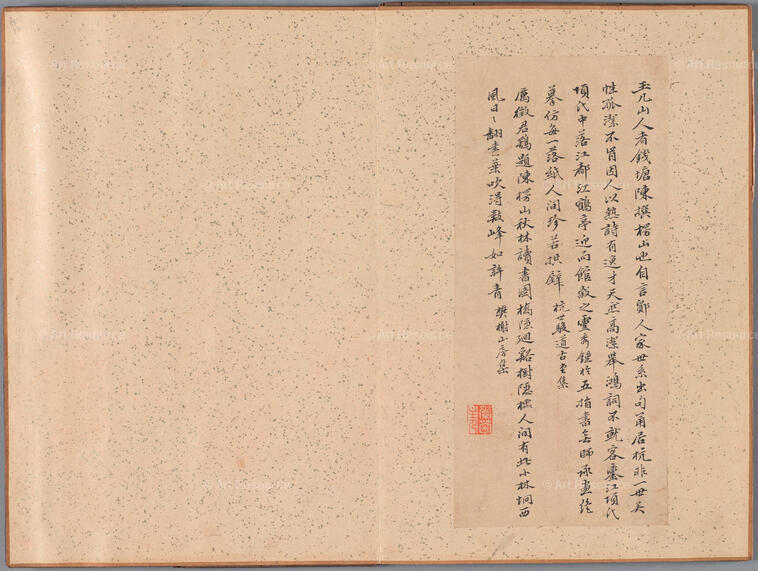 玉几山人者錢塘陳撰楞山也自言鄞人家世系出句甬居杭非一世矣
性孤潔不肯因人以熱詩有逸才天然高潔舉鴻詞不就客鑾江項氏
項氏中落江都江鶴亭迎而館穀之靈秀鍾於五指書無師承畫絕
摹仿每一落紙人間珍若拱璧 杭世駿道古堂集
厲徵君鶚題陳楞山秋林讀書圖橋隱迴谿樹隱樓人間有此小林坰西
風日〻翻書葉吹得數峰如許青 樊榭山房集
© Art Resource